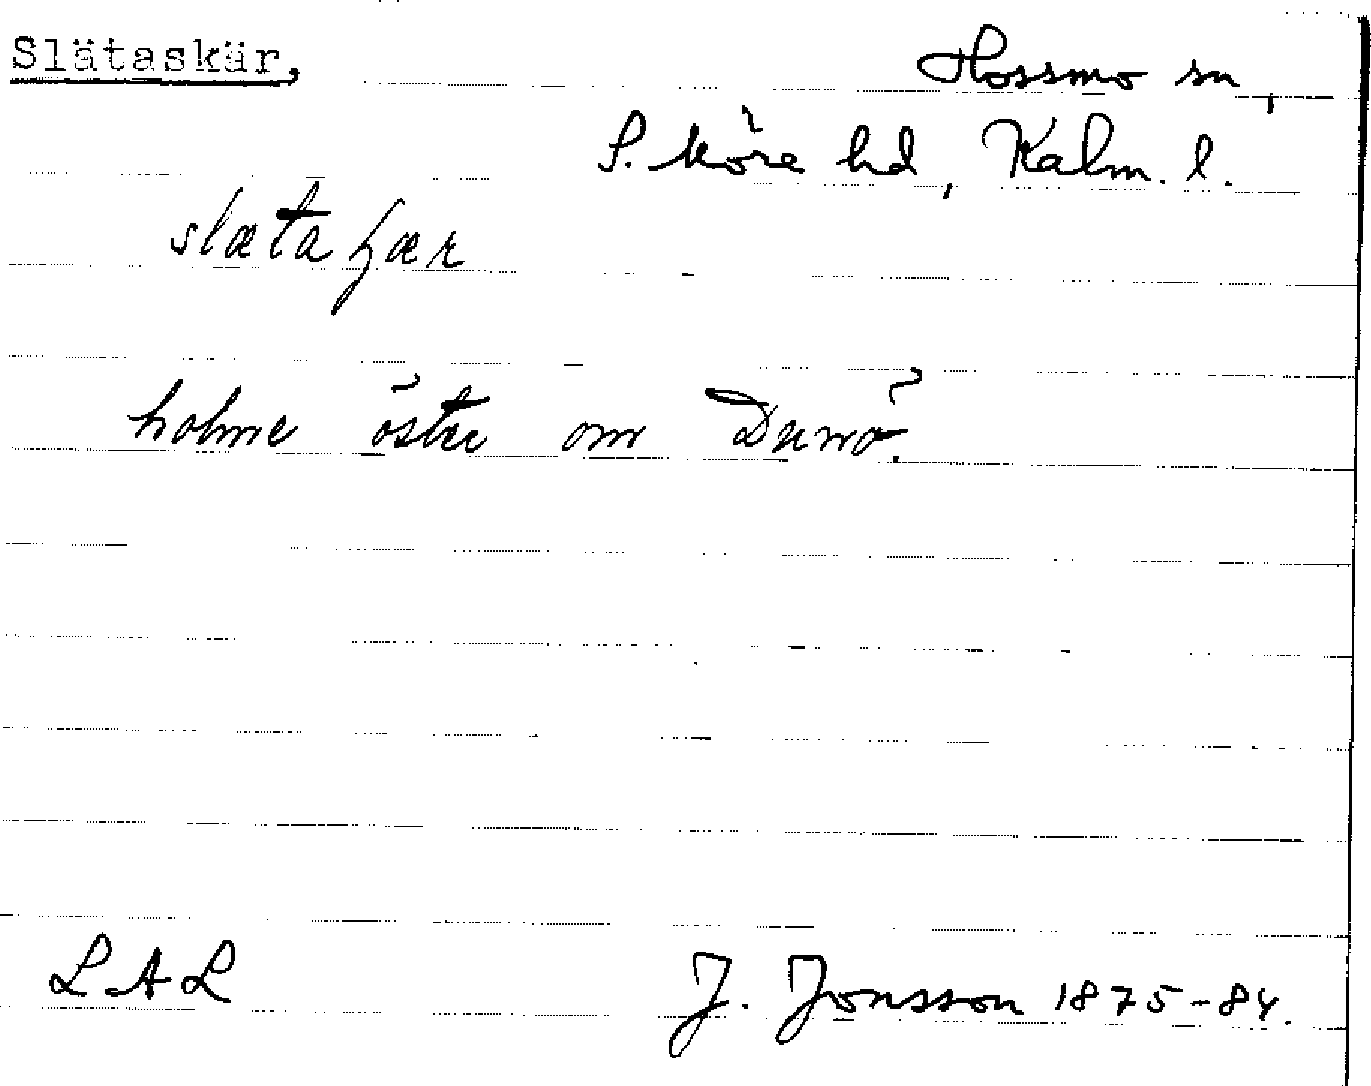 Slätaskär,
Hossmo sn,
S. Möre hd, Kalm. l.
slæta
holme öster om Dunö.
LAL
J. Jonsson 1875-84.